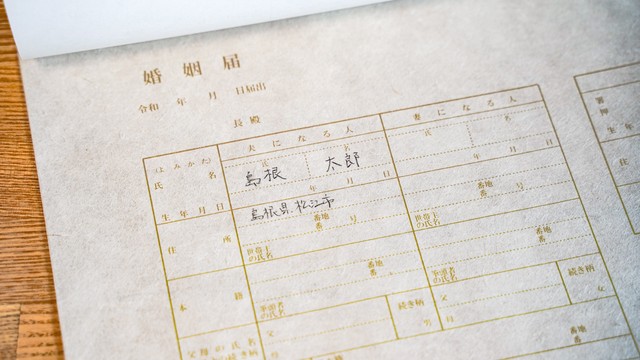 婚姻届
令和 年 月 日届出
長殿
夫になる人 妻になる人
(よみかた) 氏 名 氏 名
氏 名 島根 太郎
生年月日 年 月 日 年 月 日
住 所 島根県松江市
番地 番 号 番地 番 号
世帯主の氏名 世帯主の氏名
本 籍 番地 番 番地 番
筆頭者の氏名 筆頭者の氏名
父母の氏名 父 続き柄 父 続き柄
母 男 母 女